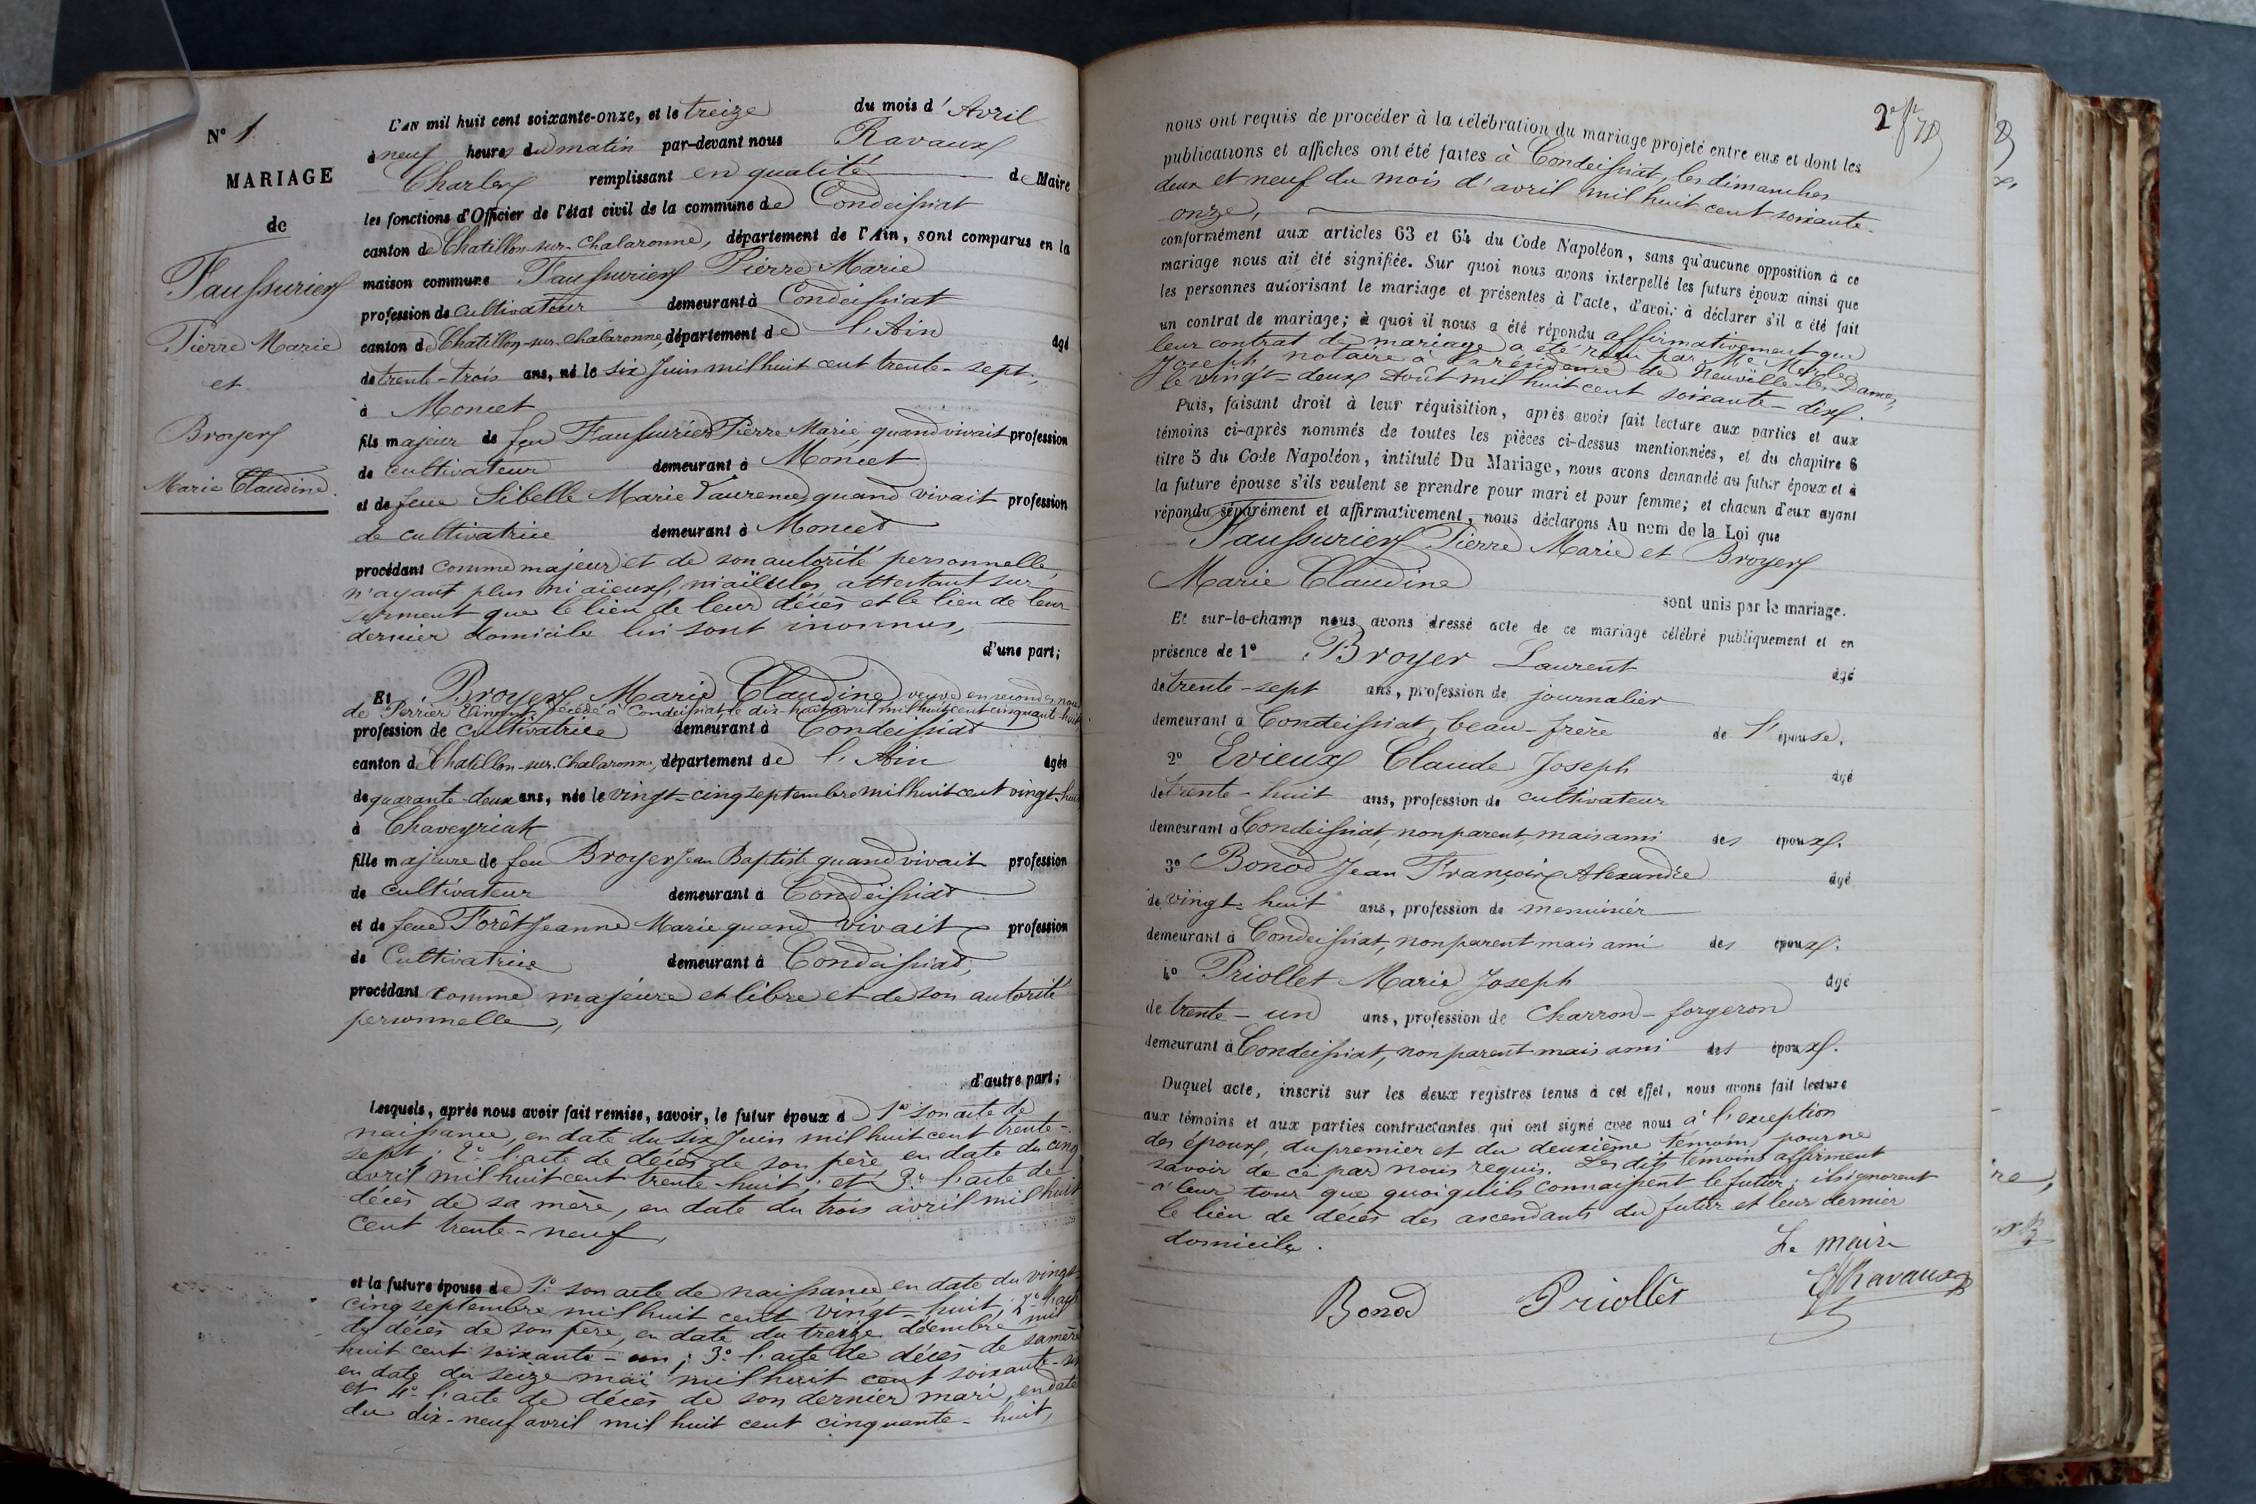 N° 1
MARIAGE
de
Faussurier
Pierre Marie
et
Broyer
Marie Claudine
L'AN mil huit cent soixante-onze, et le treize du mois d'Avril
à neuf heures du matin par-devant nous Ravaux
Charles remplissant en qualité de Maire
les fonctions d'Officier de l'état civil de la commune de Condeissiat
canton de Chatillon-sur-Chalaronne, département de l'Ain, sont comparus en la
maison commune Faussurier Pierre Marie
profession de cultivateur demeurant à Condeissiat
canton de Chatillon-sur-Chalaronne, département de l'Ain âgé
de trente-trois ans, né le six Juin mil huit cent trente-sept,
à Moncet
fils majeur de feu Faussurier Pierre Marie, quand vivait profession
de cultivateur demeurant à Moncet
et de feue Sibelle Marie Laurence, quand vivait profession
de cultivatrice demeurant à Moncet
procédant comme majeur et de son autorité personnelle,
n'ayant plus ni aïeux, ni aïeules, attestant sur
serment que le lieu de leur décès et le lieu de leur
dernier domicile lui sont inconnus,
d'une part;
Et Broyer Marie Claudine veuve en secondes noces
de Perrier décédé à Condeissiat, le dix-huit avril mil huit cent cinquante-huit,
profession de cultivatrice demeurant à Condeissiat
canton de Chatillon-sur-Chalaronne, département de l'Ain âgée
de quarante-deux ans, née le vingt-cinq septembre mil huit cent vingt-huit
à Chaveyriat
fille majeure de feu Broyer Jean Baptiste quand vivait profession
de cultivateur demeurant à Condeissiat
et de feue Forêt Jeanne Marie quand vivait profession
de Cultivatrice demeurant à Condeissiat,
procédant comme majeure et libre et de son autorité
personnelle,
d'autre part;
Lesquels, après nous avoir fait remise, savoir, le futur époux de 1° son acte de
naissance, en date du six Juin mil huit cent trente-
sept; 2° l'acte de décès de son père, en date du cinq
avril mil huit cent trente-huit; et 3° l'acte de
décès de sa mère, en date du trois avril mil huit
cent trente-neuf,
et la future épouse de 1° son acte de naissance, en date du vingt-
cinq septembre mil huit cent vingt-huit; 2° l'acte
de décès de son père, en date du treize décembre mil
huit cent soixante-un; 3° l'acte de décès de sa mère
en date du seize mai mil huit cent soixante-six
et 4° l'acte de décès de son dernier mari, en date
du dix-neuf avril mil huit cent cinquante-huit,
nous ont requis de procéder à la célébration du mariage projeté entre eux et dont les
publications et affiches ont été faites à Condeissiat, les dimanches
deux et neuf du mois d'avril mil huit cent soixante-
onze,
conformément aux articles 63 et 64 du Code Napoléon, sans qu'aucune opposition à ce
mariage nous ait été signifiée. Sur quoi nous avons interpellé les futurs époux ainsi que
les personnes autorisant le mariage et présentes à l'acte, d'avoir à déclarer s'il a été fait
un contrat de mariage; à quoi il nous a été répondu affirmativement que
leur contrat de mariage a été reçu par Me Merle
Joseph, notaire à la résidence de Neuville-les-Dames,
le vingt-deux Août mil huit cent soixante-dix.
Puis, faisant droit à leur réquisition, après avoir fait lecture aux parties et aux
témoins ci-après nommés de toutes les pièces ci-dessus mentionnées, et du chapitre 6
titre 5 du Code Napoléon, intitulé Du Mariage, nous avons demandé au futur époux et à
la future épouse s'ils veulent se prendre pour mari et pour femme; et chacun d'eux ayant
répondu séparément et affirmativement, nous déclarons Au nom de la Loi que
Faussurier Pierre Marie et Broyer
Marie Claudine
sont unis par le mariage.
Et sur-le-champ nous avons dressé acte de ce mariage célébré publiquement et en
présence de 1° Broyer Laurent âgé
de trente-sept ans, profession de journalier
demeurant à Condeissiat, beau-frère de l'épouse,
2° Evieux Claude Joseph âgé
de trente-huit ans, profession de cultivateur
demeurant à Condeissiat, non parent, mais ami des époux.
3° Bonod Jean François Alexandre âgé
de vingt-huit ans, profession de menuisier
demeurant à Condeissiat, non parent mais ami des époux.
4° Priollet Marie Joseph âgé
de trente-un ans, profession de charron-forgeron
demeurant à Condeissiat, non parent mais ami des époux.
Duquel acte, inscrit sur les deux registres tenus à cet effet, nous avons fait lecture
aux témoins et aux parties contractantes qui ont signé avec nous à l'exception
des époux, du premier et du deuxième témoin, pour ne
savoir de ce par nous requis. Les dits témoins affirment
à leur tour que quoiqu'ils connaissent le futur, ils ignorent
le lieu de décès des ascendants du futur et leur dernier
domicile.
Le maire
Bonod Priollet Ravaux